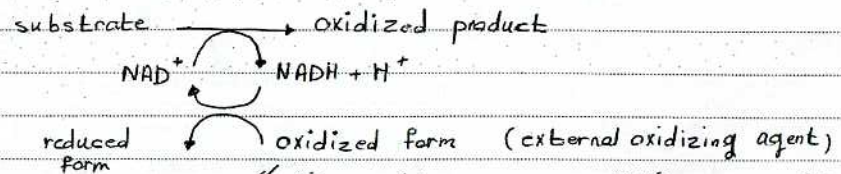 substrate → oxidized product
NAD⁺ NADH + H⁺
reduced oxidized form (external oxidizing agent)
form